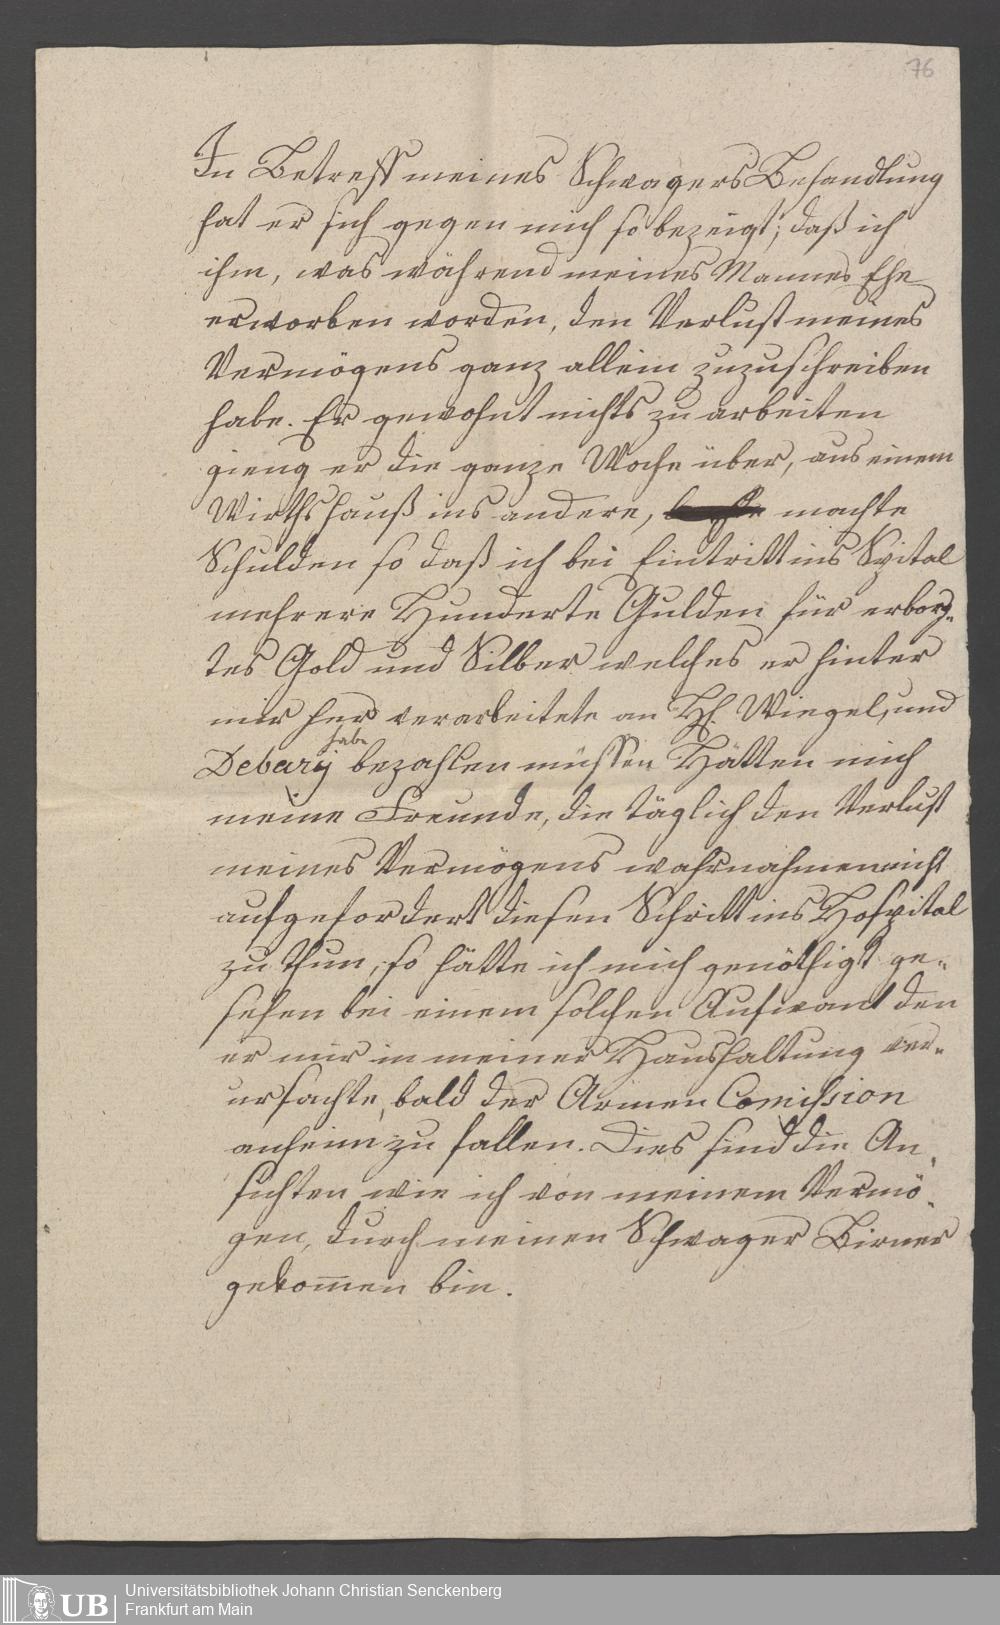 76
In Betreff meines Schwagers Behandlung
hat er sich gegen mich so bezeigt, daß ich
ihm, was während meines Mannes Ehe
erworben worden, den Verlust meines
Vermögens ganz allein zuzuschreiben
habe. Er gewohnt nichts zu arbeiten
gieng er die ganze Woche über, aus einem
Wirthshauß ins andere, machte
Schulden so daß ich bei Eintritt ins Spital
mehrere Hunderte Gulden für erborg-
tes Gold und Silber welches er hinter
mir her verarbeitete an H. Wiegel, und
habe
Debary bezahlen müssen Hätten mich
meine Freunde, die täglich den Verlust
meines Vermögens wahrnahmen nicht
aufgefordert diesen Schritt ins Hospital
zu thun, so hätte ich mich genöthigt ge-
sehen bei einem solchen Aufwant den
er mir in meiner Haushaltung ver-
ursachte, bald der Armen Comission
anheim zu fallen. Dies sind die An-
sichten wie ich von meinem Vermö-
gen, durch meinen Schwager Birner
gekom̅en bin.
UB
Universitätsbibliothek Johann Christian Senckenberg
Frankfurt am Main